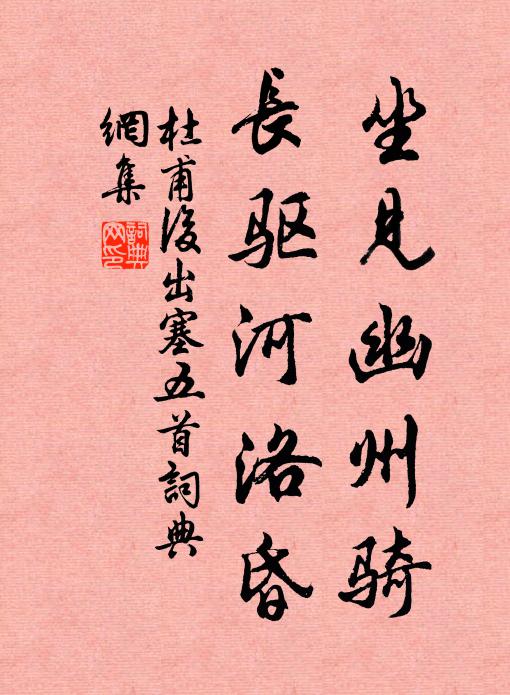 坐见幽州骑
長驱河洛昏
杜甫後出塞五首詞典
網集
詞典
网印